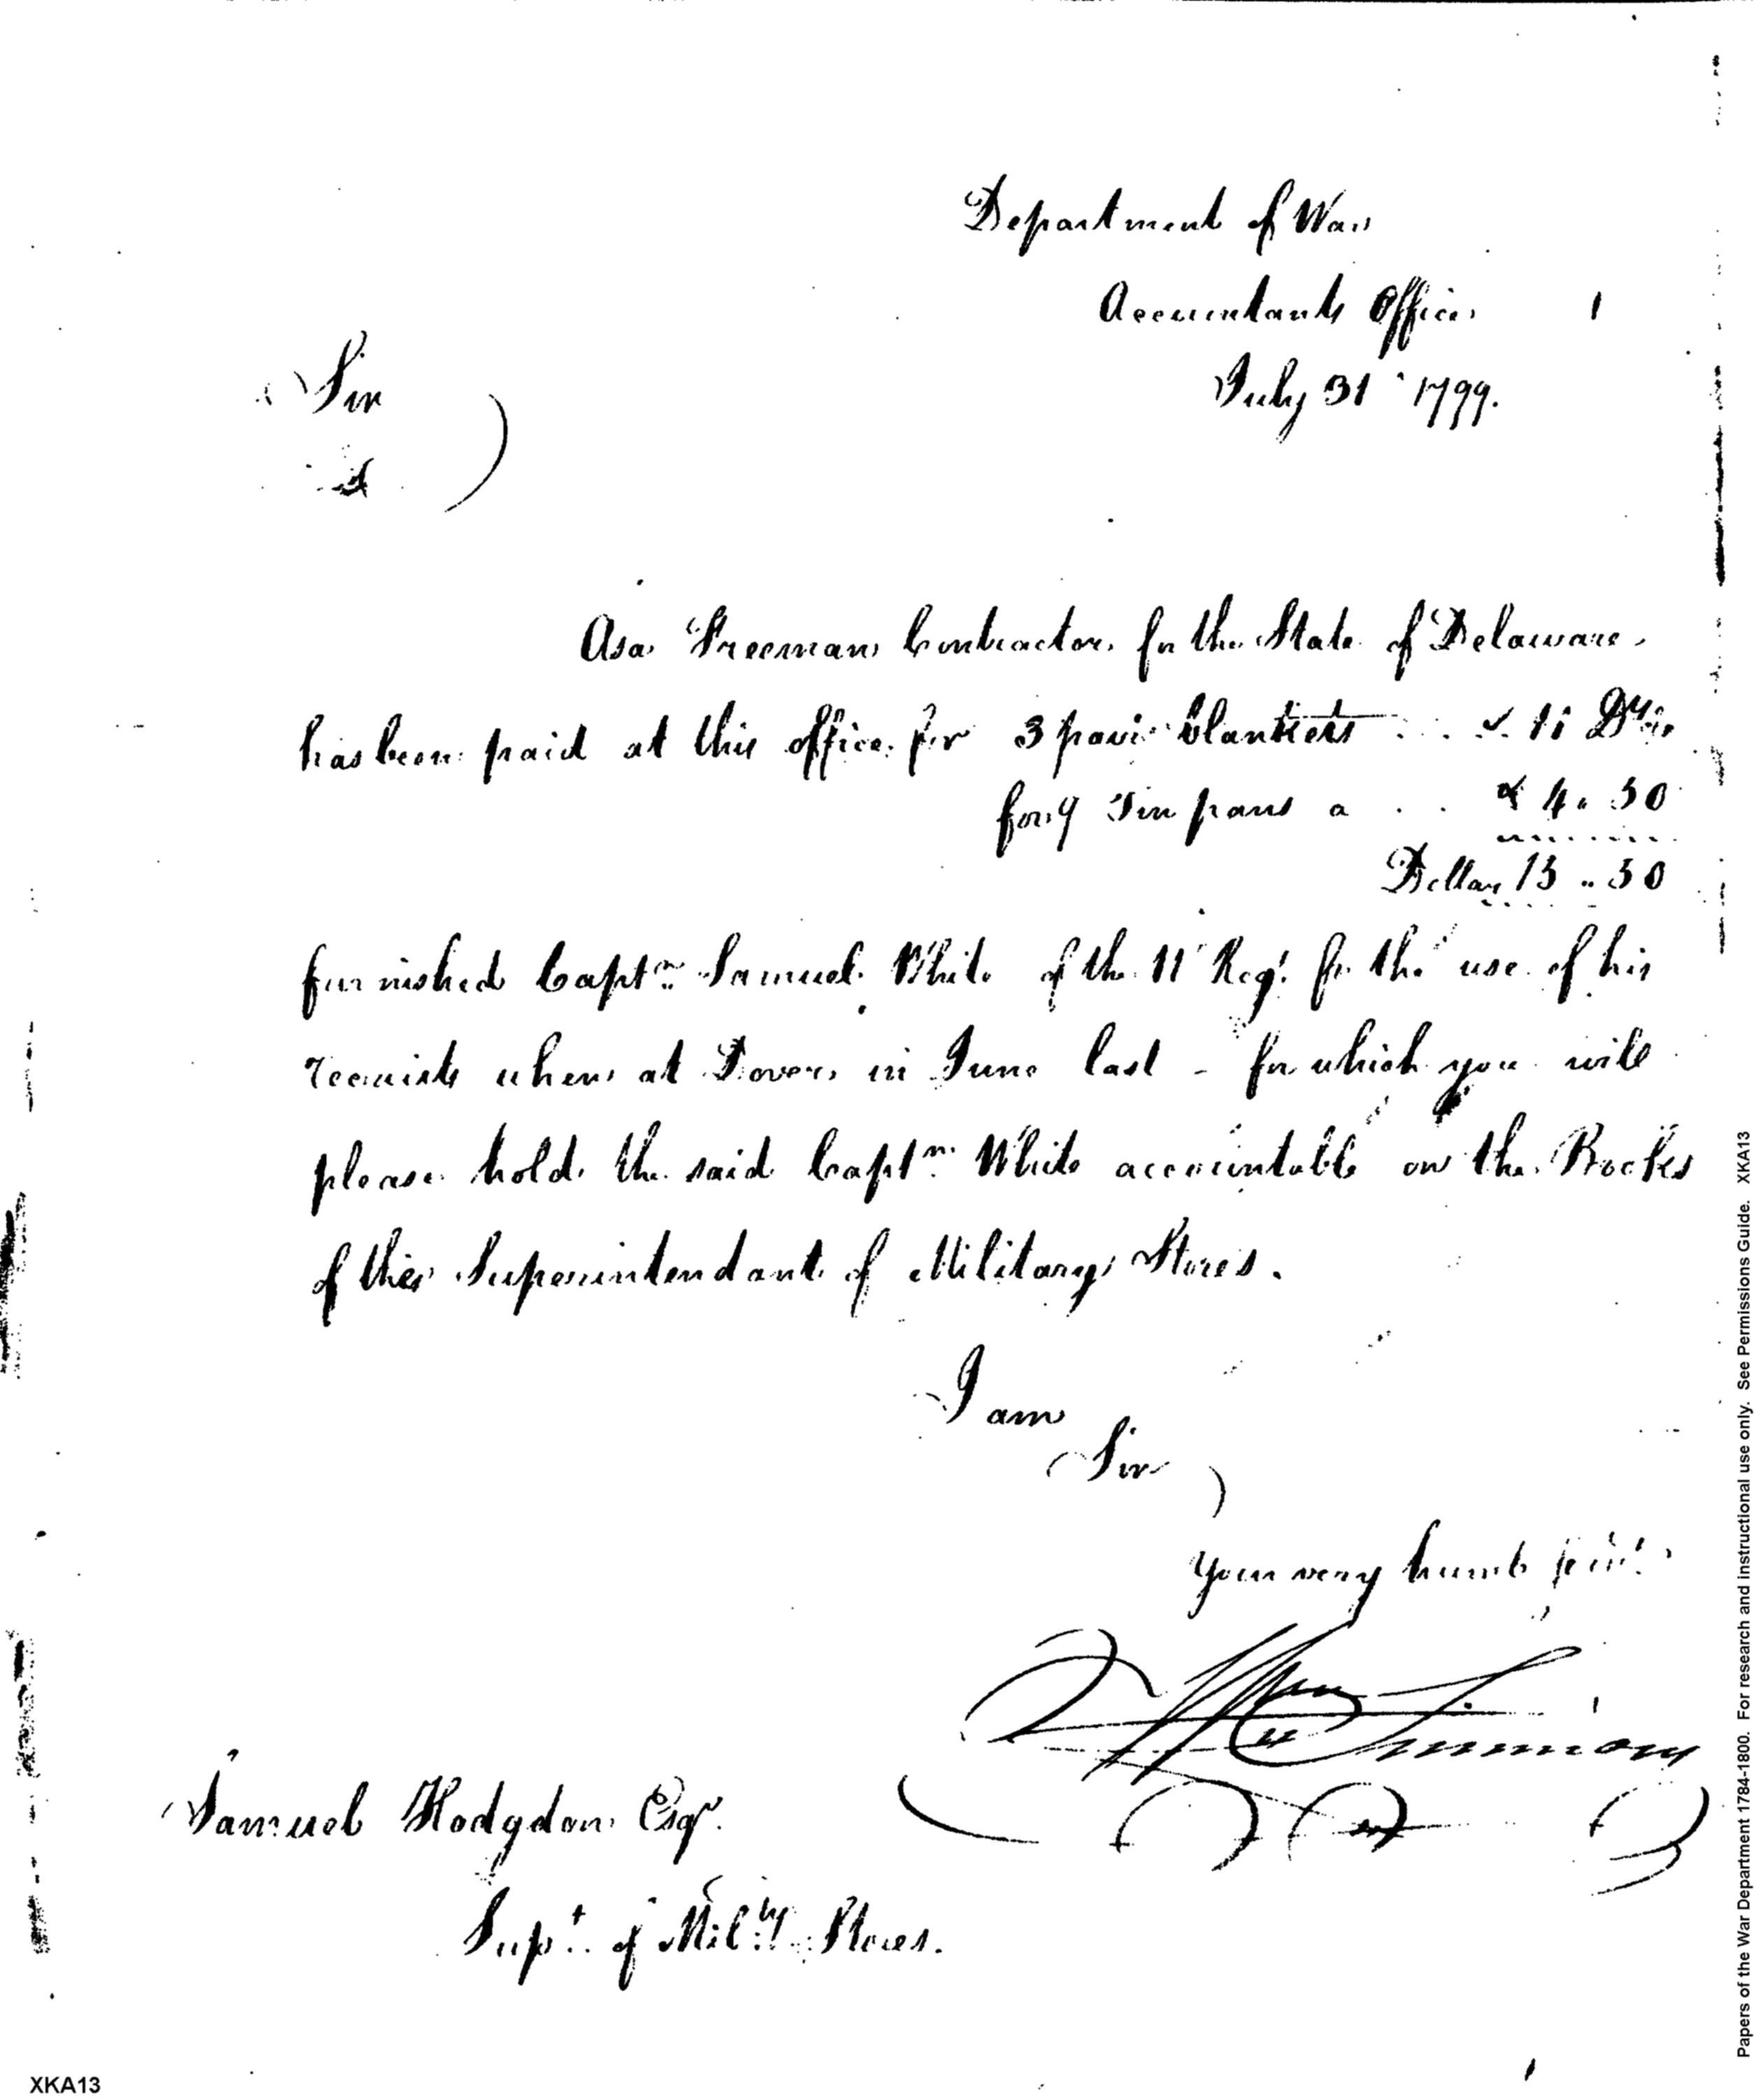 Department of War
Accountants Office
July 31 1799.
Sir
Asa Freeman Contractor for the State of Delaware
has been paid at this office for 3 pair blankets 11 Dllrs
for 9 Tin pans a 4.50
Dollars 15.50
furnished Captn. Samuel White of the 11 Regt. for the use of his
recruits when at Dover in June last - for which you will
please hold the said Captn. White accountable on the Books
of the Superintendant of Military Stores.
I am
Sir
Your very humb servt.
Wm Simmons
Samuel Hodgdon Esqr.
Supt. of Mily. Stores.
XKA13
Papers of the War Department 1784-1800. For research and instructional use only. See Permissions Guide. XKA13